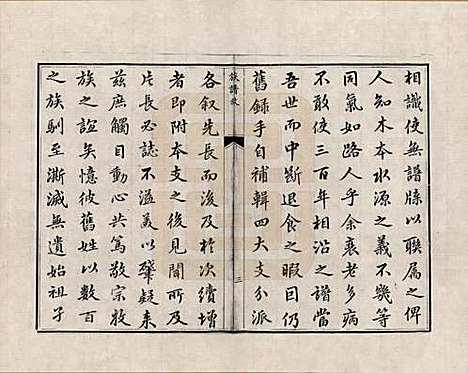 相識使無譜牒以聯属之俾
人知木本水源之義不幾等
同氣如路人乎余衰老多病
不敢使三百年相沿之譜當
吾世而中斷退食之暇因仍
舊録手自補輯四大支分派
族譜序
三
各叙先長而後及於次續增
者即附本支之後見聞所及
片長必誌不溢美以肇疑来
兹庶觸目動心共篤敬宗牧
族之誼矣憶彼舊姓以數百
之族馴至澌滅無遺始祖子